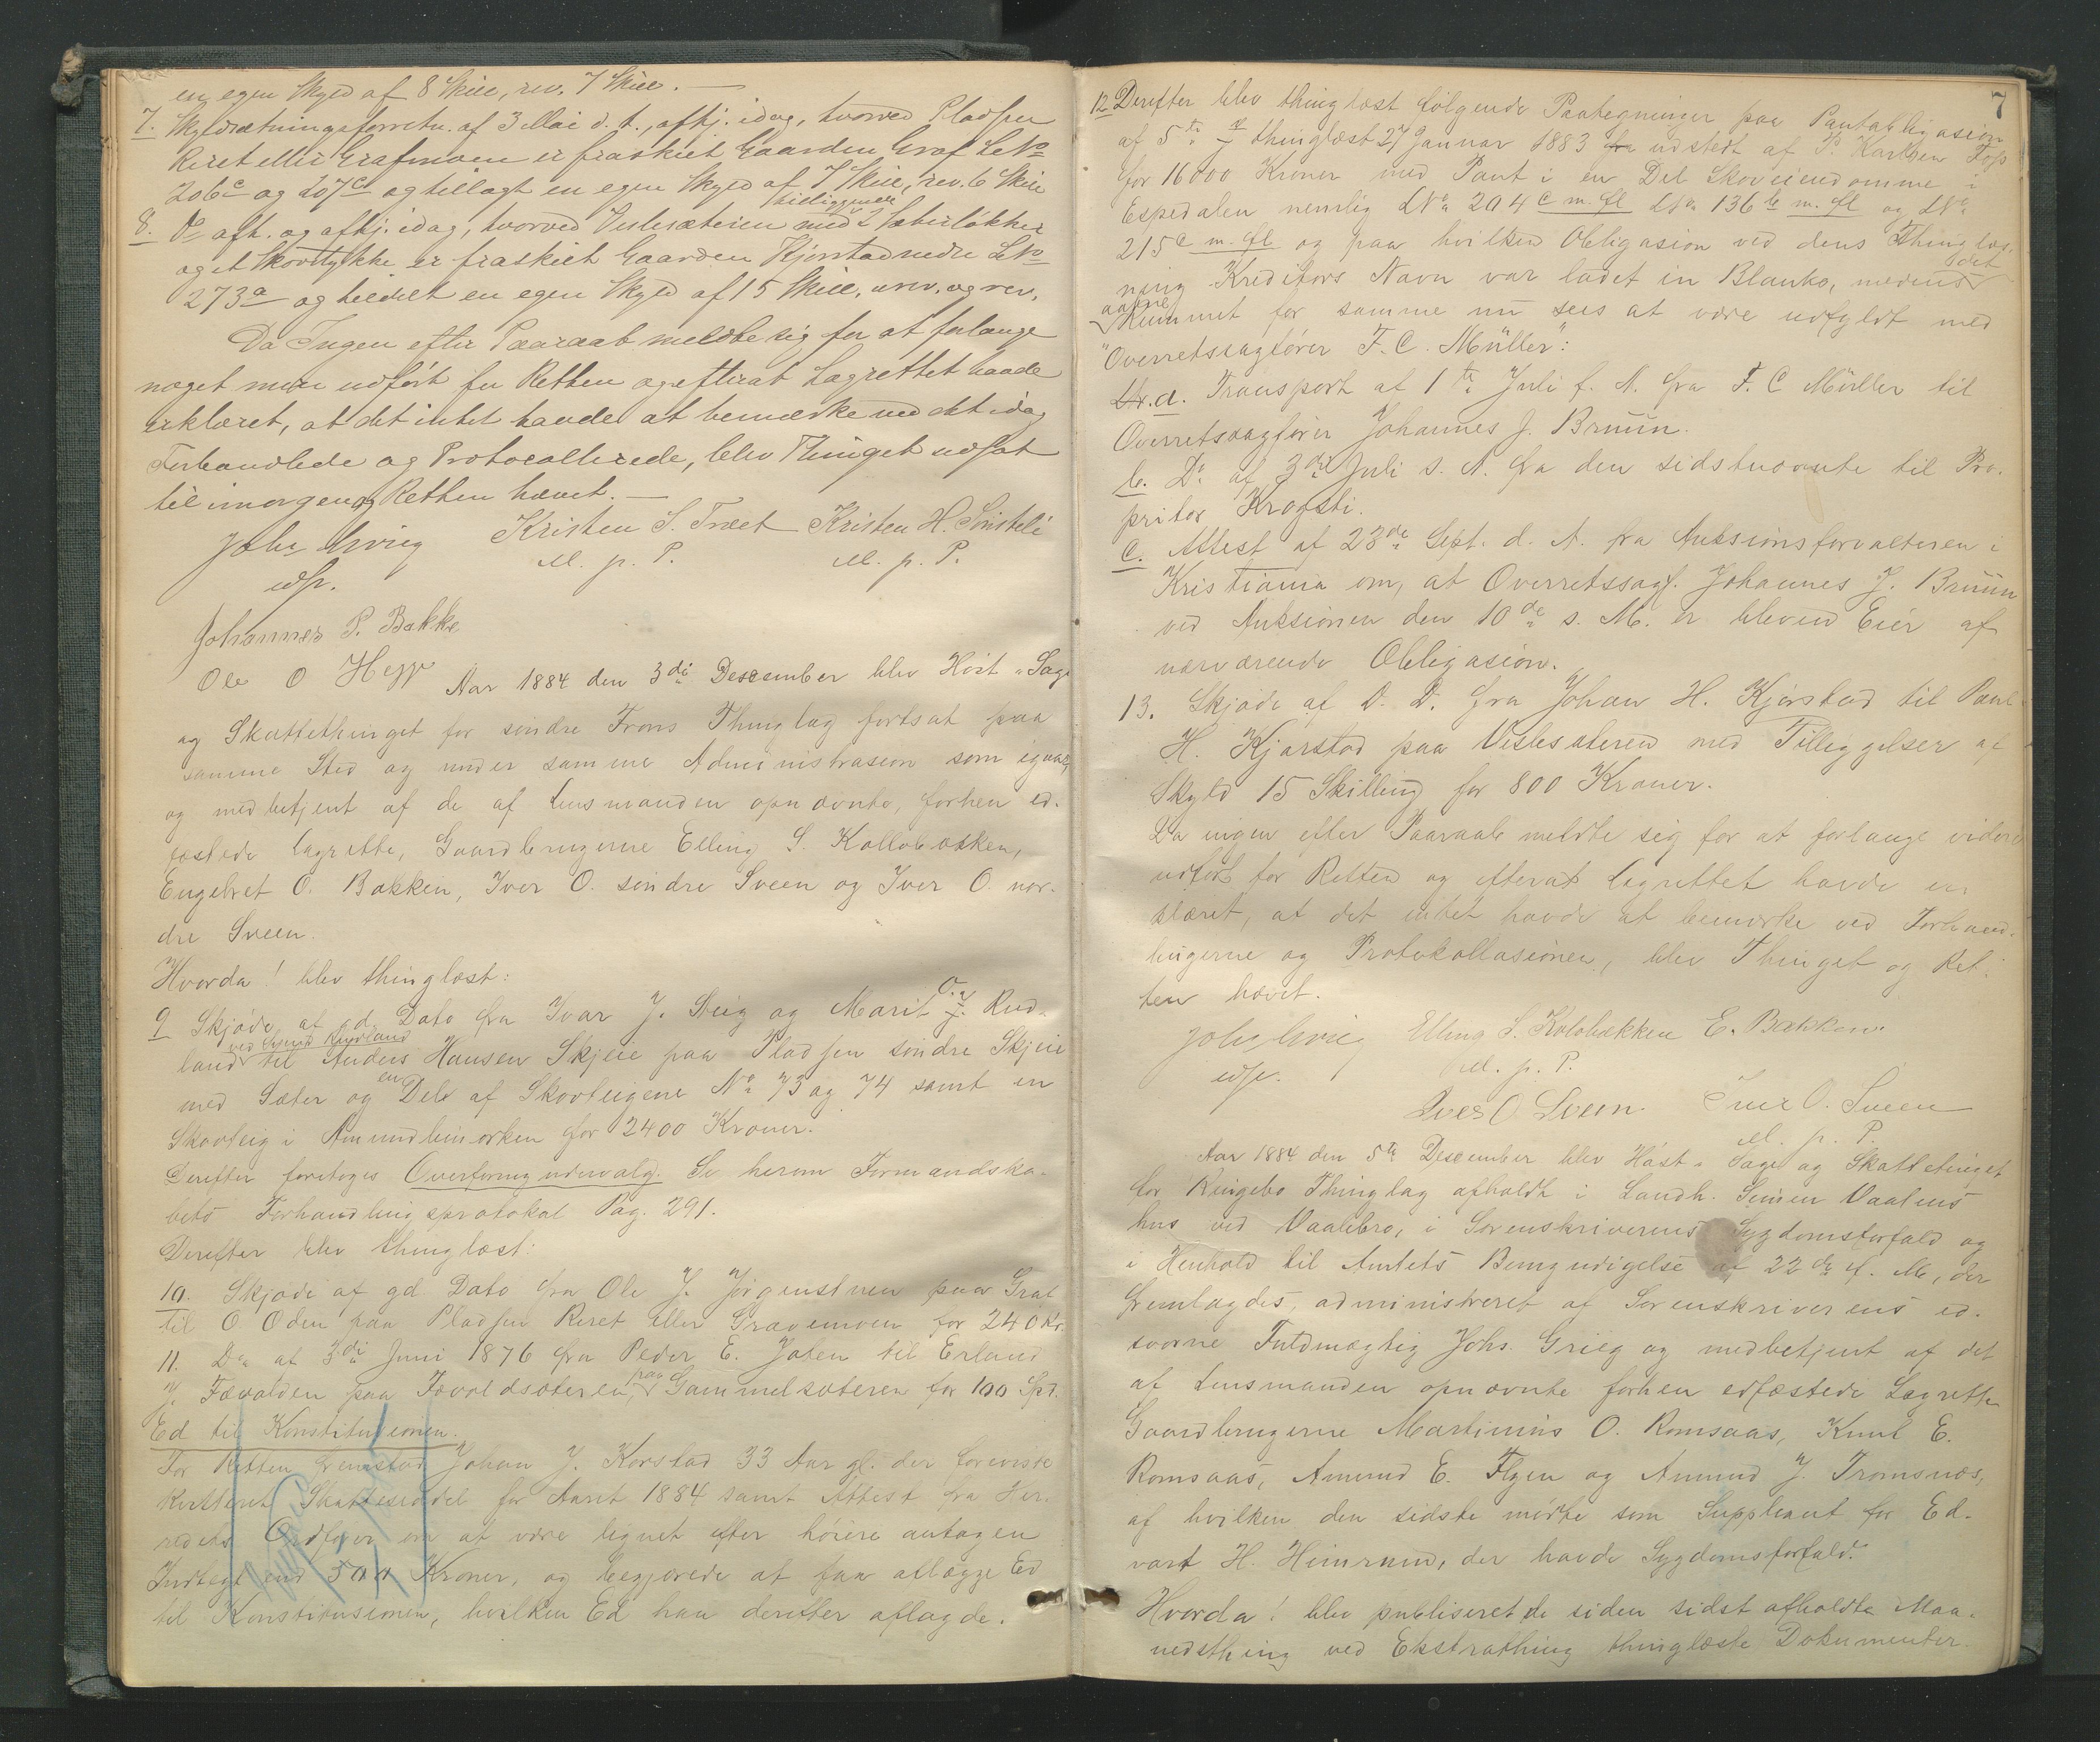 en egen Skyld af 8 Skill, rev. 7 Skill. —
7. Skyldsætningsforretn. af 3 Mai d. A., afhj. idag, hvorved Pladsen
Reret eller Grafmoen er fraskilt Gaarden Graf LNo
206c og 207c og tillagt en egen Skyld af 7 Skill, rev. 6 Skill
8. Do afh. og afhj. idag, hvorved Veslesæteren med 2 tilliggende Sæterløkker
og et Skovstykke er fraskilt Gaarden Kjørstad nedre LNo
273a og tildelt en egen Skyld af 15 Skill. urev. og rev.
Da Ingen efter Paaraab meldte sig for at forlange
noget mere udført for Retten og efterat Lagrettet havde
erklæret, at det intet havde at bemærke ved det idag
Forhandlede og Protocollerede, blev Thinget udsat
til imorgen og Retten hævet. —
Johs Grieg Kristen S. Træet Kristen H. Sinsteli
edsv. M. p. P. M. p. P.
Johannes P. Bakke
Ole O Hage
Aar 1884 den 3die Desember blev Høst-Sage
og Skattethinget for søndre Frons Thinglag fortsat paa
samme Sted og under samme Administrasion som igaar,
og medbetjent af de af Lensmanden opnævnte, forhen ed-
fæstede Lagrette, Gaardbrugerne Elling S. Kollobækken,
Engebret O. Bakken, Iver O. søndre Sveen og Iver O. nor-
dre Sveen.
Hvorda! blev thinglæst:
9 Skjøde af gd. Dato fra Ivar J. Steig og Marit O. J. Rud-
land ved Svend Rudland til Anders Hansen Skjeie paa Pladsen søndre Skjeie
med Sæter og en Del af Skovteigene No 73 og 74 samt en
Skovteig i Amundlimorken for 2400 Kroner.
Derefter foretoges Overformyndervalg. Se herom Formandska-
bets Forhandlingsprotokol Pag. 291.
Derefter blev thinglæst:
10. Skjøde af gd Dato fra Ole J. Jørgenstuen paa Graf
til O. Oden paa Pladsen Reret eller Gravemoen for 240 Kr.
11. Do af 3die Juni 1876 fra Peder E. Joten til Erland
J. Favolden paa Favoldsæteren, paa Gammelsæteren for 100 Spd.
Ed til Konstitusionen.
For Retten fremstod Johan J. Korstad 33 Aar gl. der foreviste
kvitteret Skatteseddel for Aaret 1884 samt Attest fra Her-
redets Ordfører om at være lignet efter høiere antagen
Indtægt end 500 Kroner, og begjærede at faa aflægge Ed
til Konstitusionen, hvilken Ed han derefter aflagde.
7
12 Derefter blev thinglæst følgende Paategninger paa Pantobligasion
af 5te thinglæst 27 Januar 1883 fra udstedt af P. Karlsen Foss
for 16000 Kroner med Pant i en Del Skoveiendomme i
Espedalen nemlig LNo 204c m. fl LNo 136b m. fl og LNo
215c m. fl og paa hvilken Obligasion ved dens Thinglæs-
ning Kreditors Navn var ladet in Blanko, medens det
aabne Rummet for samme nu sees at være udfyldt med
"Overretssagfører F. C. Müller":
Lit. a. Transport af 1te Juli f. A. fra F. C Müller til
Overretssagfører Johannes J. Bruun.
b. Do af 3die Juli s. A. fra den sidstnævnte til Pro-
pritær Krogsti.
c. Attest af 23de Sept. d. A. fra Auksionsforvalteren i
Kristiania om, at Overretssagf. Johannes J. Bruun
ved Auksionen den 10de s. M. er bleven Eier af
nærværende Obligasion.
13. Skjøde af D. D. fra Johan H. Kjørstad til Paul
H. Kjørstad paa Veslesæteren med Tilliggelser af
Skyld 15 Skilling for 800 Kroner.
Da ingen efter Paaraab meldte sig for at forlange videre
udført for Retten og efterat Lagrettet havde er-
klæret, at det intet havde at bemærke ved Forhand-
lingerne og Protokollasionen, blev Thinget og Ret-
ten hævet.
Johs Grieg Elling S. Kolobækken E. Bakken.
edsv. M. p. P.
Iver O. Sveen. Iver O. Sveen
M. p. P.
Aar 1884 den 5te Desember blev Høst- Sage og Skattetinget
for Ringebo Thinglag afholdt i Landh. Simen Vaalens
hus ved Vaalebro, i Sorenskriverens Sygdomsforfald og
i Henhold til Amtets Bemyndigelse af 22de f. M., der
fremlagdes, administreret af Sorenskriverens ed-
svorne Fuldmægtig Johs. Grieg og medbetjent af det
af Lensmanden opnævnte forhen edfæstede Lagrette
Gaardbrugerne Martinius O. Romsaas, Knut E.
Romsaas, Amund E. Flyen og Amund J. Tromsnæs,
af hvilken den sidste mødte som Suppleant for Ed-
vart H. Heimrum, der havde Sygdomsforfald.
Hvorda! blev publiseret de siden sidst afholdte Maa-
nedsthing ved Ekstrathing thinglæste Dokumenter.